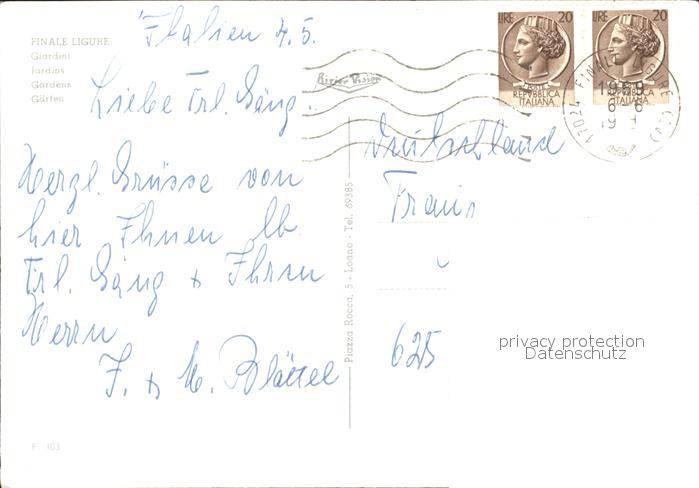 FINALE LIGURE
Giardini
Jardins
Gardens
Gärten
Italien 4.5.
Liebe Frl. Säng!
Herzl. Grüsse von
hier Ihnen lb.
Frl. Säng + Ihren
Herrn
F. + M. Blättel
F. 103
Piazza Rocca, 5 - Loano - Tel. 69385
LIRE 20
POSTE
REPVBBLICA
ITALIANA
LIRE 20
REPVBBLICA
ITALIANA
17024 FINALE LIGURE (SV)
1969
Deutschland
Frau
625
privacy protection
Datenschutz